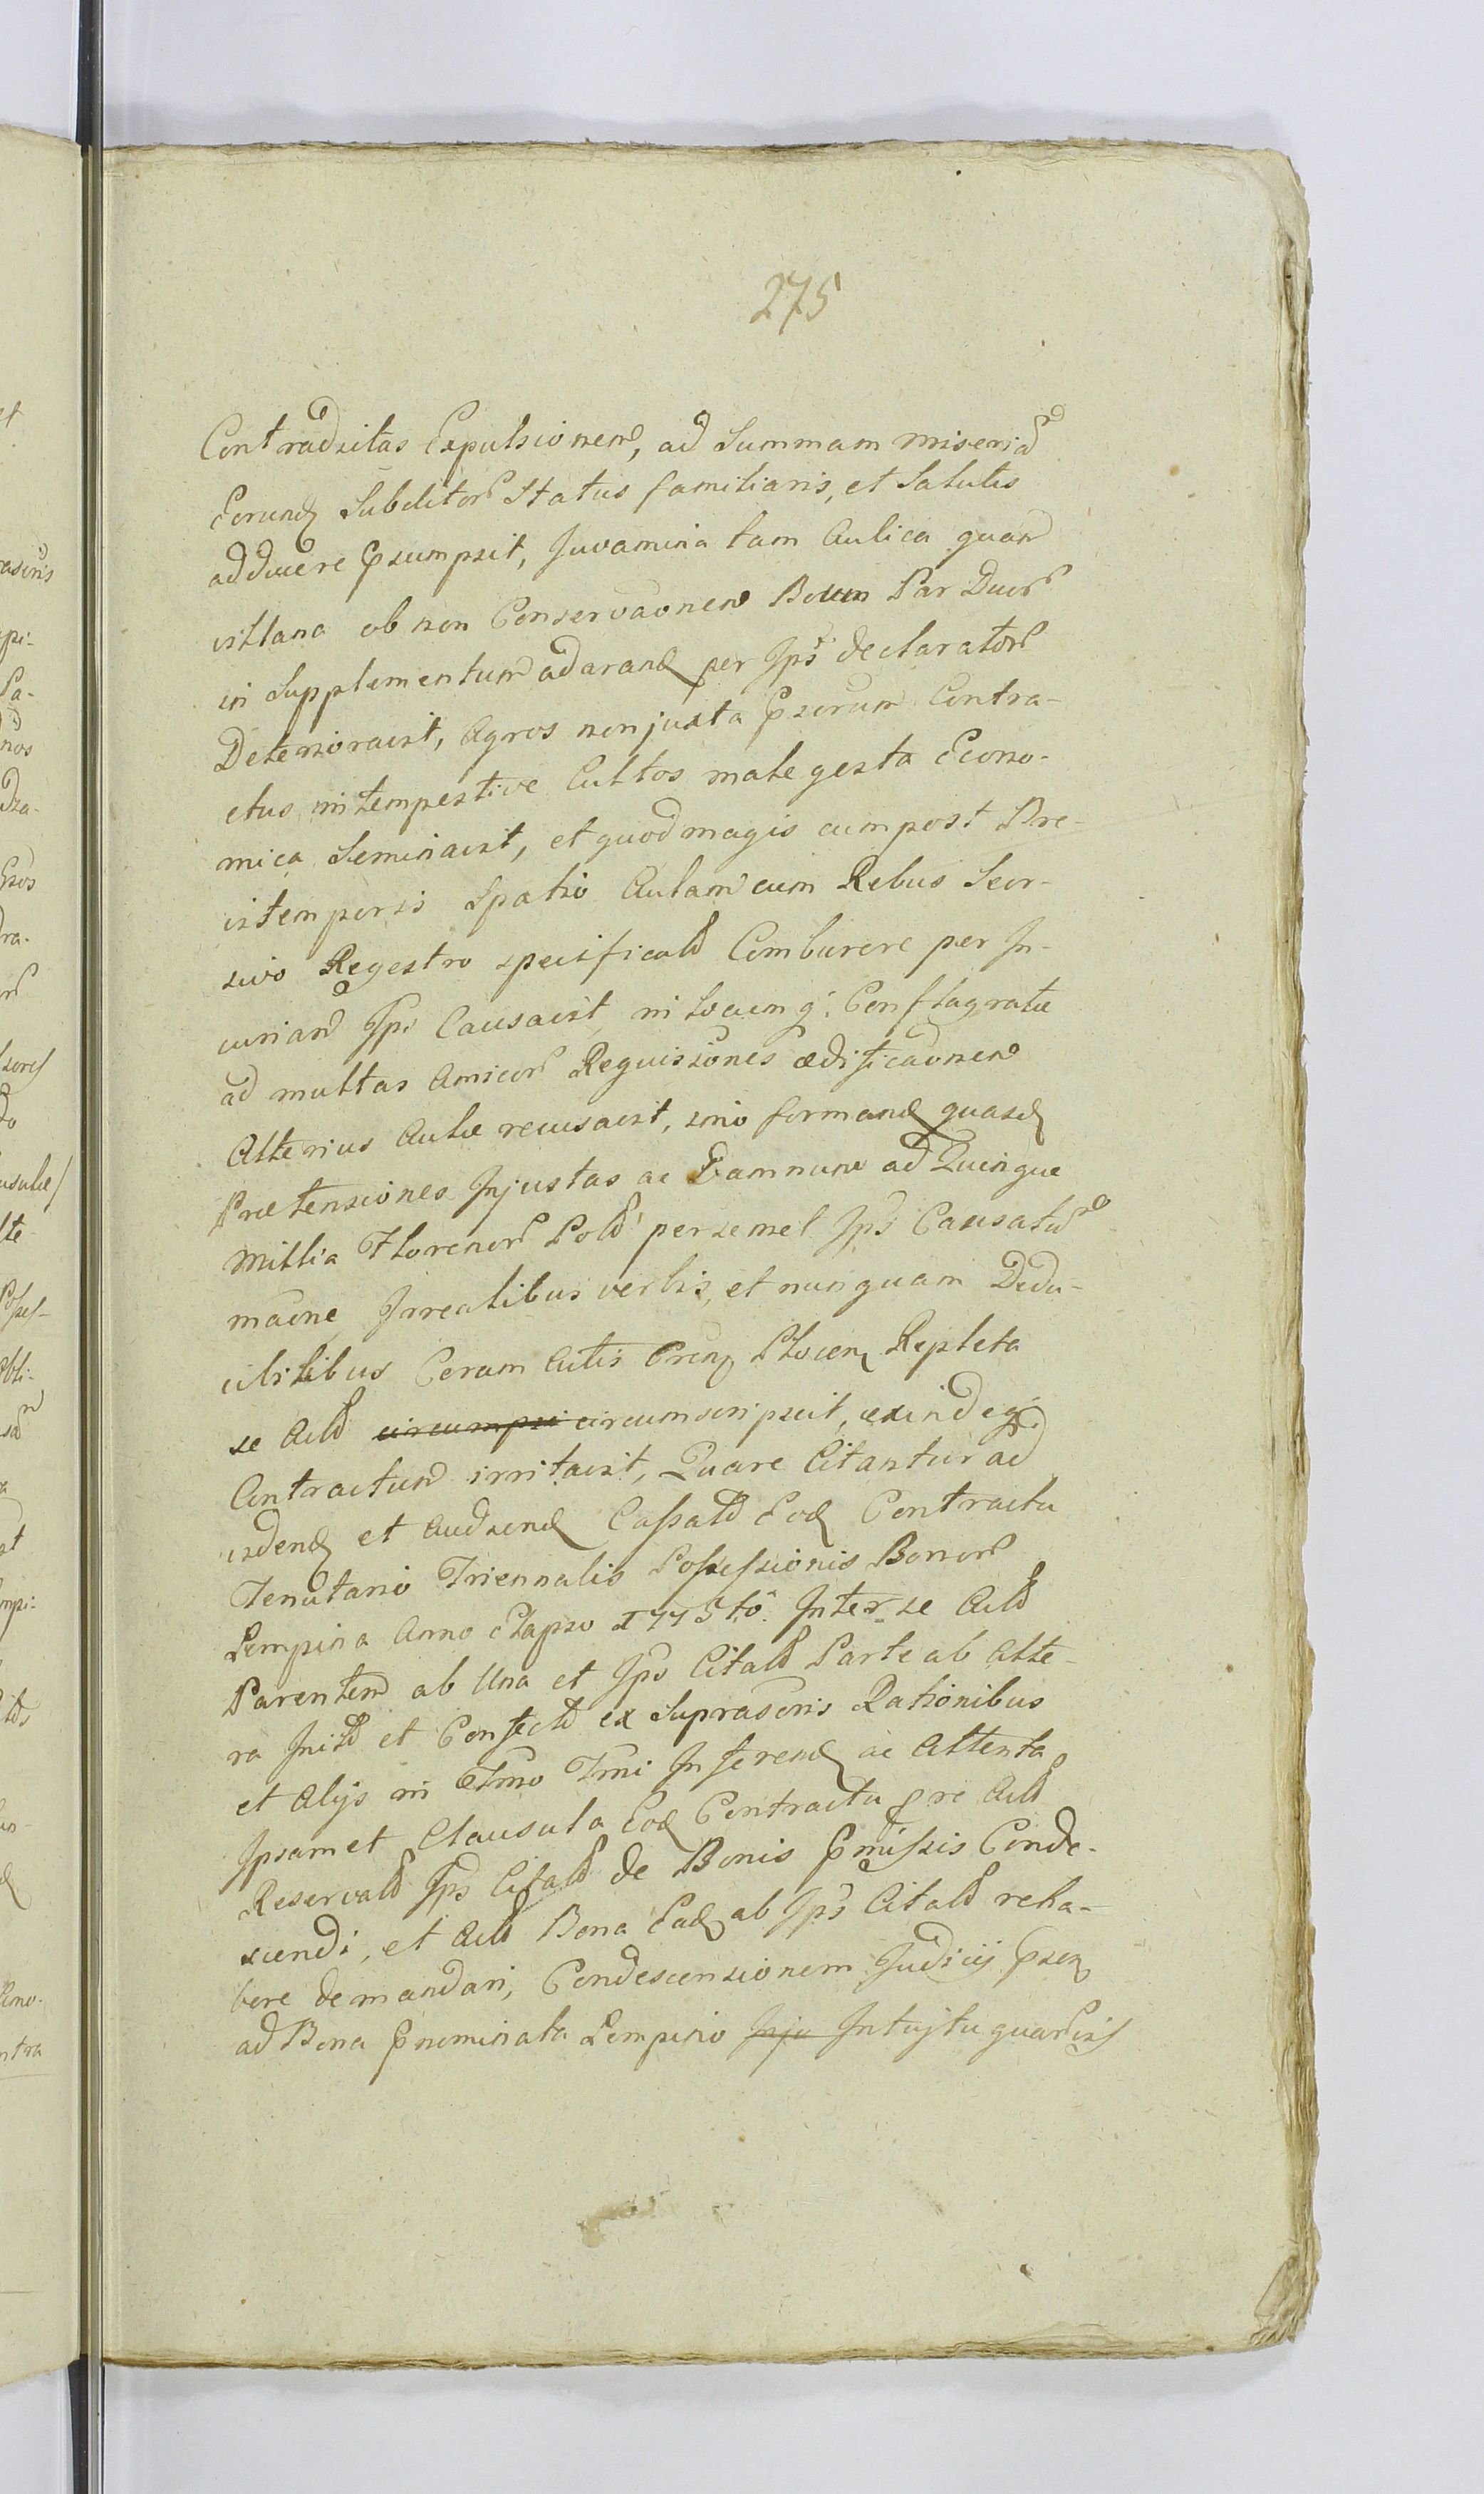 275
Contradritas Expulsionem, ad Summam miseriam
Eorund Subditor Status familiaris, et Salutis
adducere Psumpsit, Juvamina tam Aulica quam
villana ob non Conservaonem Boum Par Duor
in Supplementum ad arand per Ips declarator
Deterioravit, Agros non juxta Psorum Contra-
ctus, intempestive Cultos male gesta Econo-
mica Seminavit, et quod magis cum post Bre-
vi temporis Spatio Aulam cum Rebus Seor-
sivo Regestro specificatt Comburere per In-
curiam Ips Causavit, in locum q: Conflagratæ
ad multas Amicor Requisiones ædificaonem
Alterius Aulæ recusavit, imo formand quasd
Prætensiones Injustas ac Damnum ad Quinque
Millia Florenor Pold per semel Ips Causatum
maone Irrealibus verbis, et nunquam Dedu-
cibilibus Coram Actis Pren Plocen Repleta
se Actt circumpsi circumscripsit, exinde q
Contractum irritavit, Quare Citantur ad
vdend et Audiend Cassatt Eod Contractu
Tenutario Triennalis Possessionis Bonor
Lempina Anno Elapso 1775to. Inter se Actt
Parentem ab Una et Ips Citatt Parte ab Alte-
ra Initt et Confectt ex Suprascris Rationibus
et Alijs in Tmo Tmi Inferend ac Attenta
Ipsamet Clausula Eod Contractu pre Actt
Reservatt Ips Citatt de Bonis Pmissis Conde-
scendi, et Actt Bona Ead ab Ips Citatt reha-
bere demandari, Condescensionem Judicij Psen
ad Bona Pnominata Lempino Inju Intuitu quar